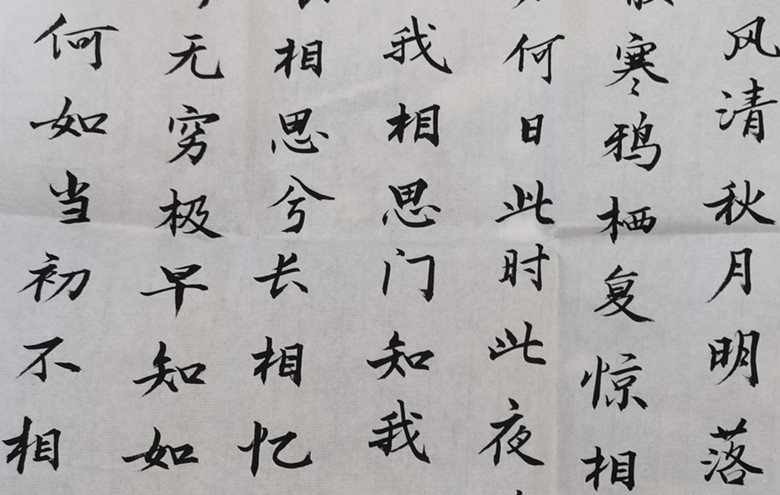 风清秋月明落
寒鸦栖复惊相
何日此时此夜
我相思门知我
相思兮长相忆
无穷极早知如
何如当初不相